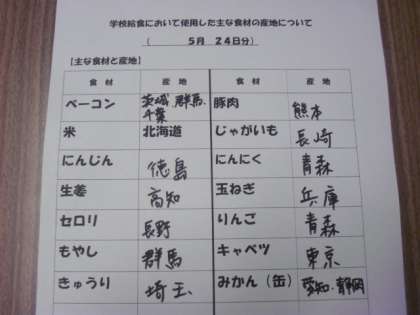 学校給食において使用した主な食材の産地について
(　　　5月　24日分)
【主な食材と産地】
食材 産地 食材 産地
ベーコン 茨城,群馬,千葉 豚肉 熊本
米 北海道 じゃがいも 長崎
にんじん 徳島 にんにく 青森
生姜 高知 玉ねぎ 兵庫
セロリ 長野 りんご 青森
もやし 群馬 キャベツ 東京
きゅうり 埼玉 みかん（缶） 愛知・静岡